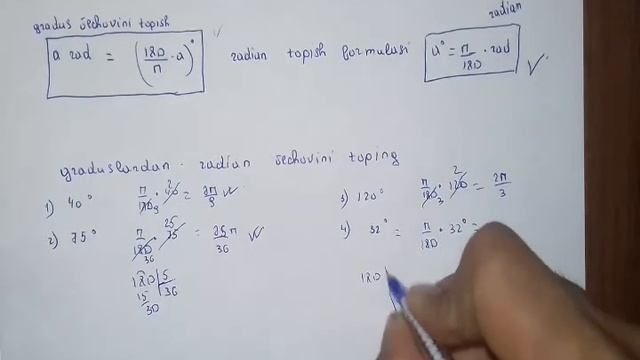 gradus o'lchovini topish
a rad = (180/π · a)°
radian topish formulasi
radian
a° = π/180 · rad
graduslardan radian o'lchovini toping
1) 40° π/180 9 · 40 2 = 2π/9
2) 75° π/180 36 · 75 25 = 25π/36
180 | 5
15 36
30
3) 120° π/180 3 · 120 2 = 2π/3
4) 32° = π/180 · 32° =
180